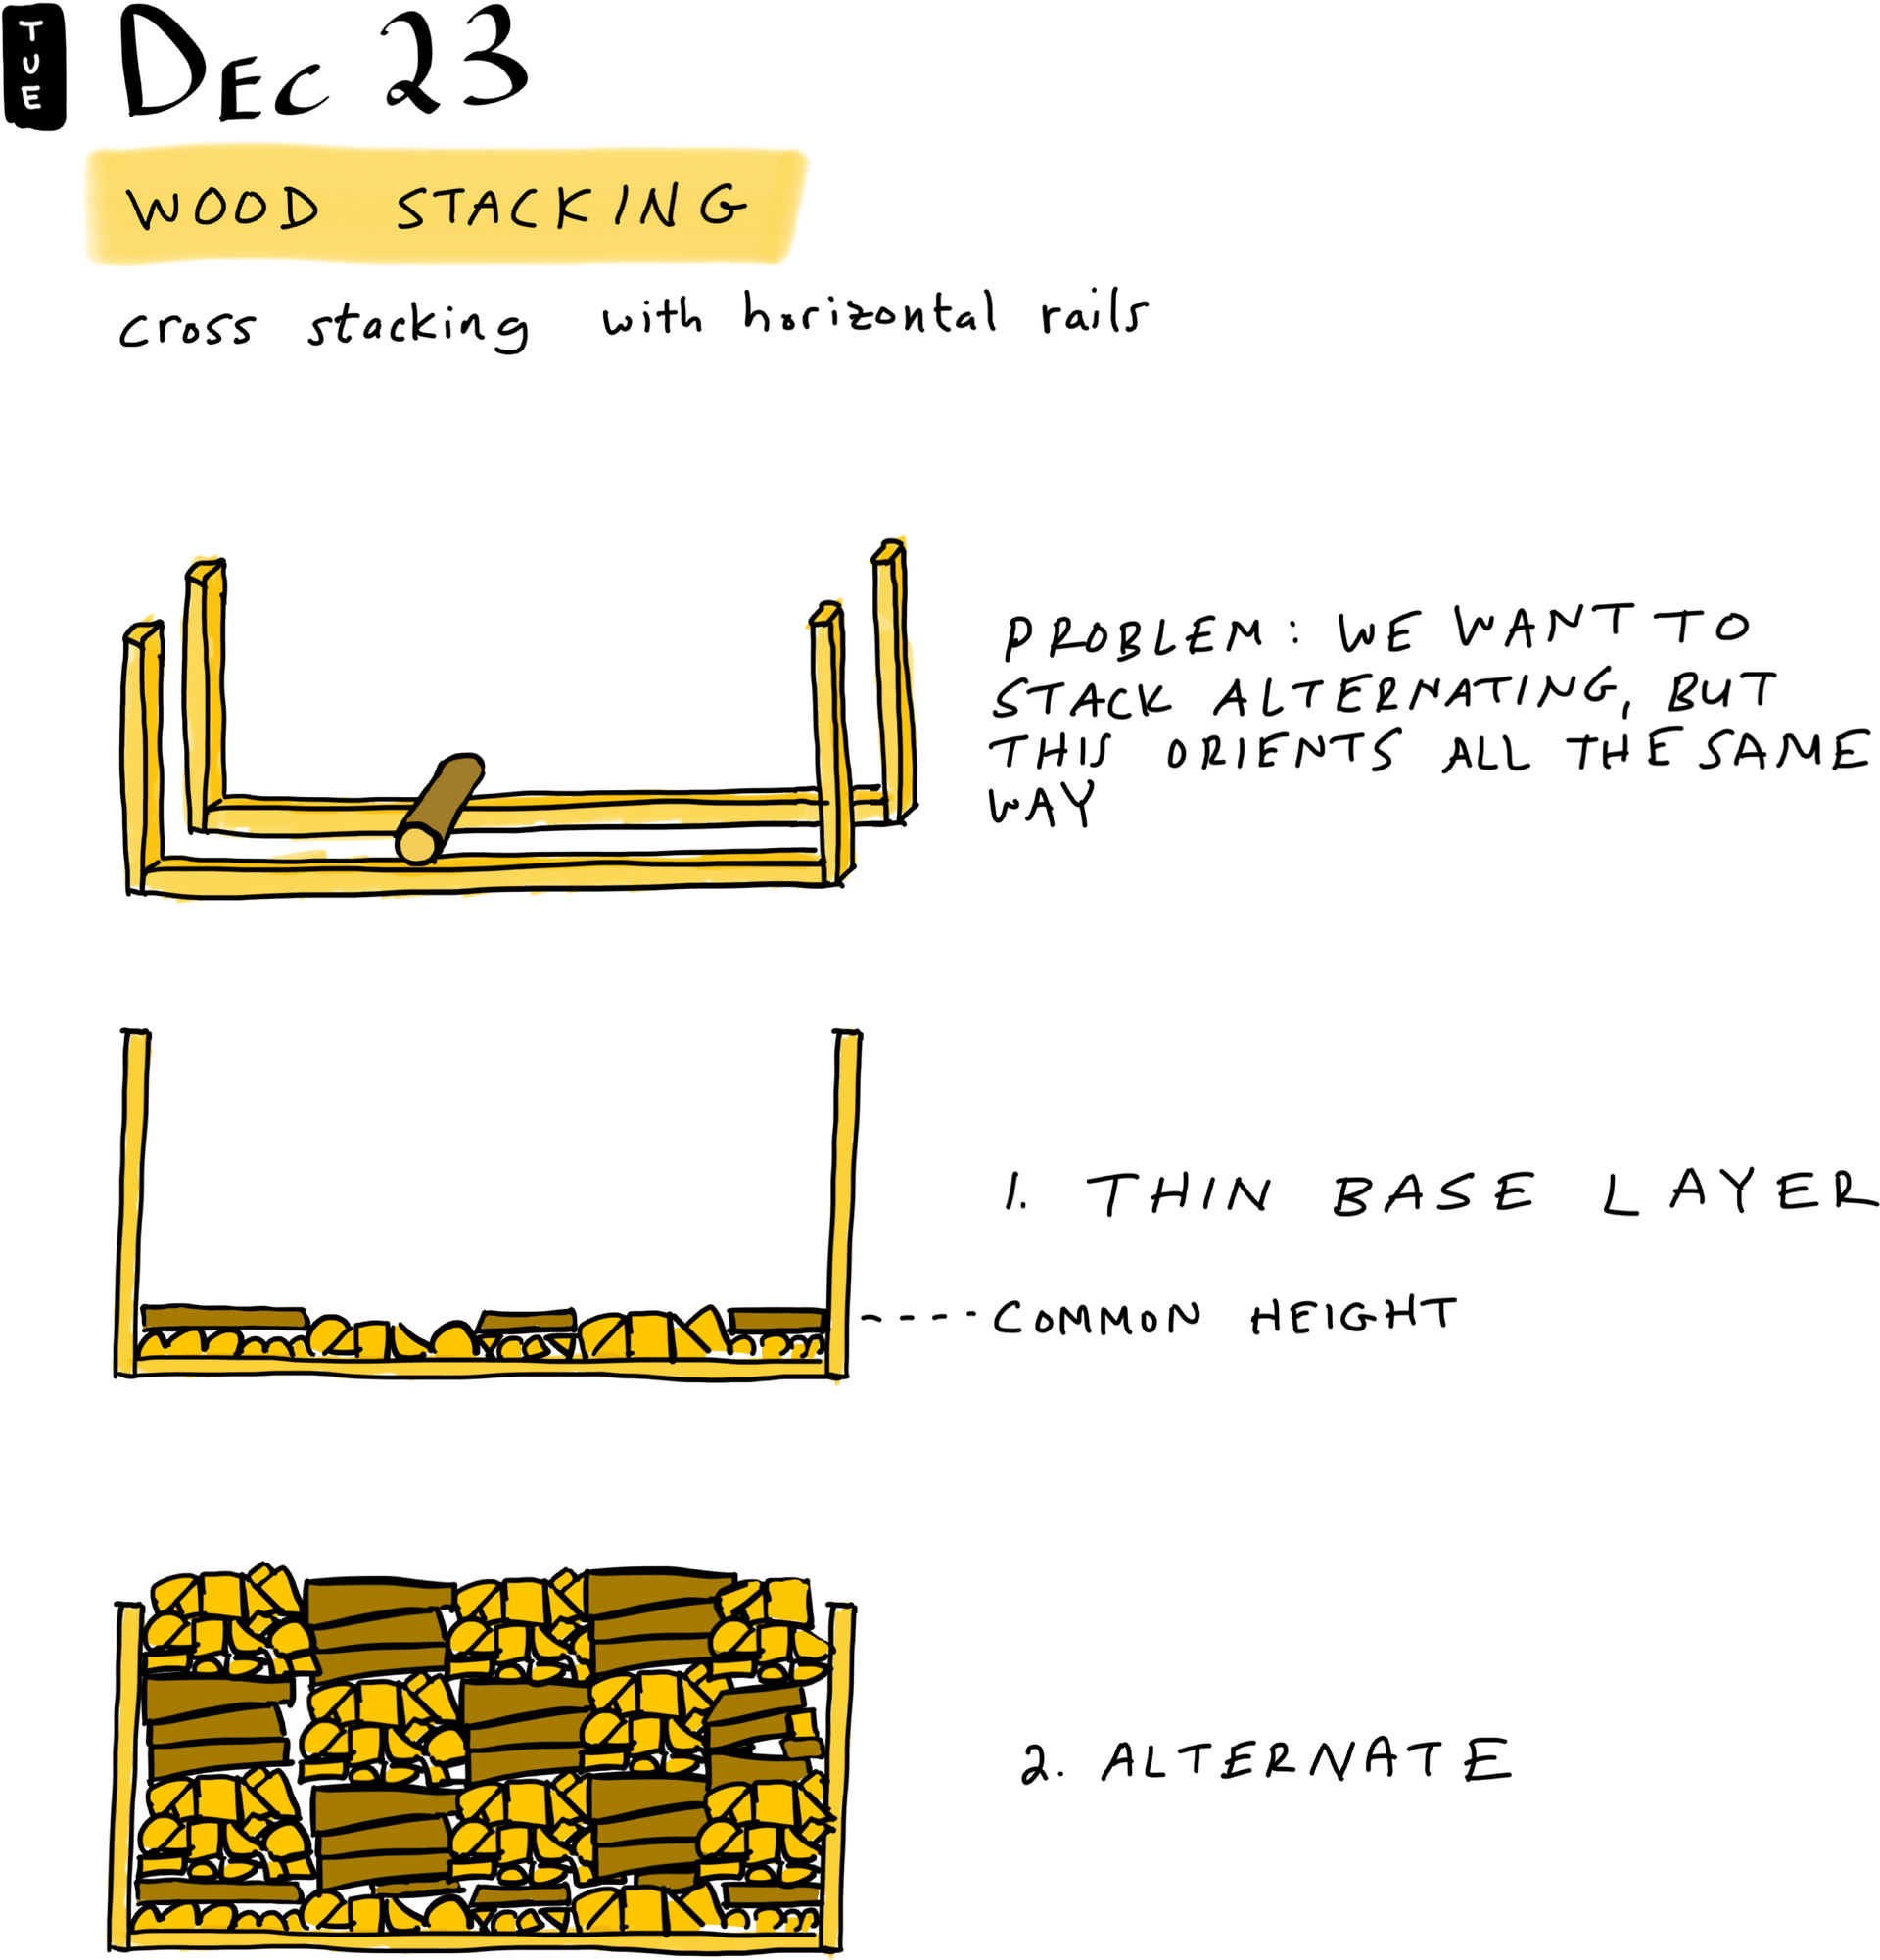 TUE
DEC 23
WOOD STACKING
cross stacking with horizontal rails
PROBLEM: WE WANT TO
STACK ALTERNATING, BUT
THIS ORIENTS ALL THE SAME
WAY
1. THIN BASE LAYER
COMMON HEIGHT
2. ALTERNATE